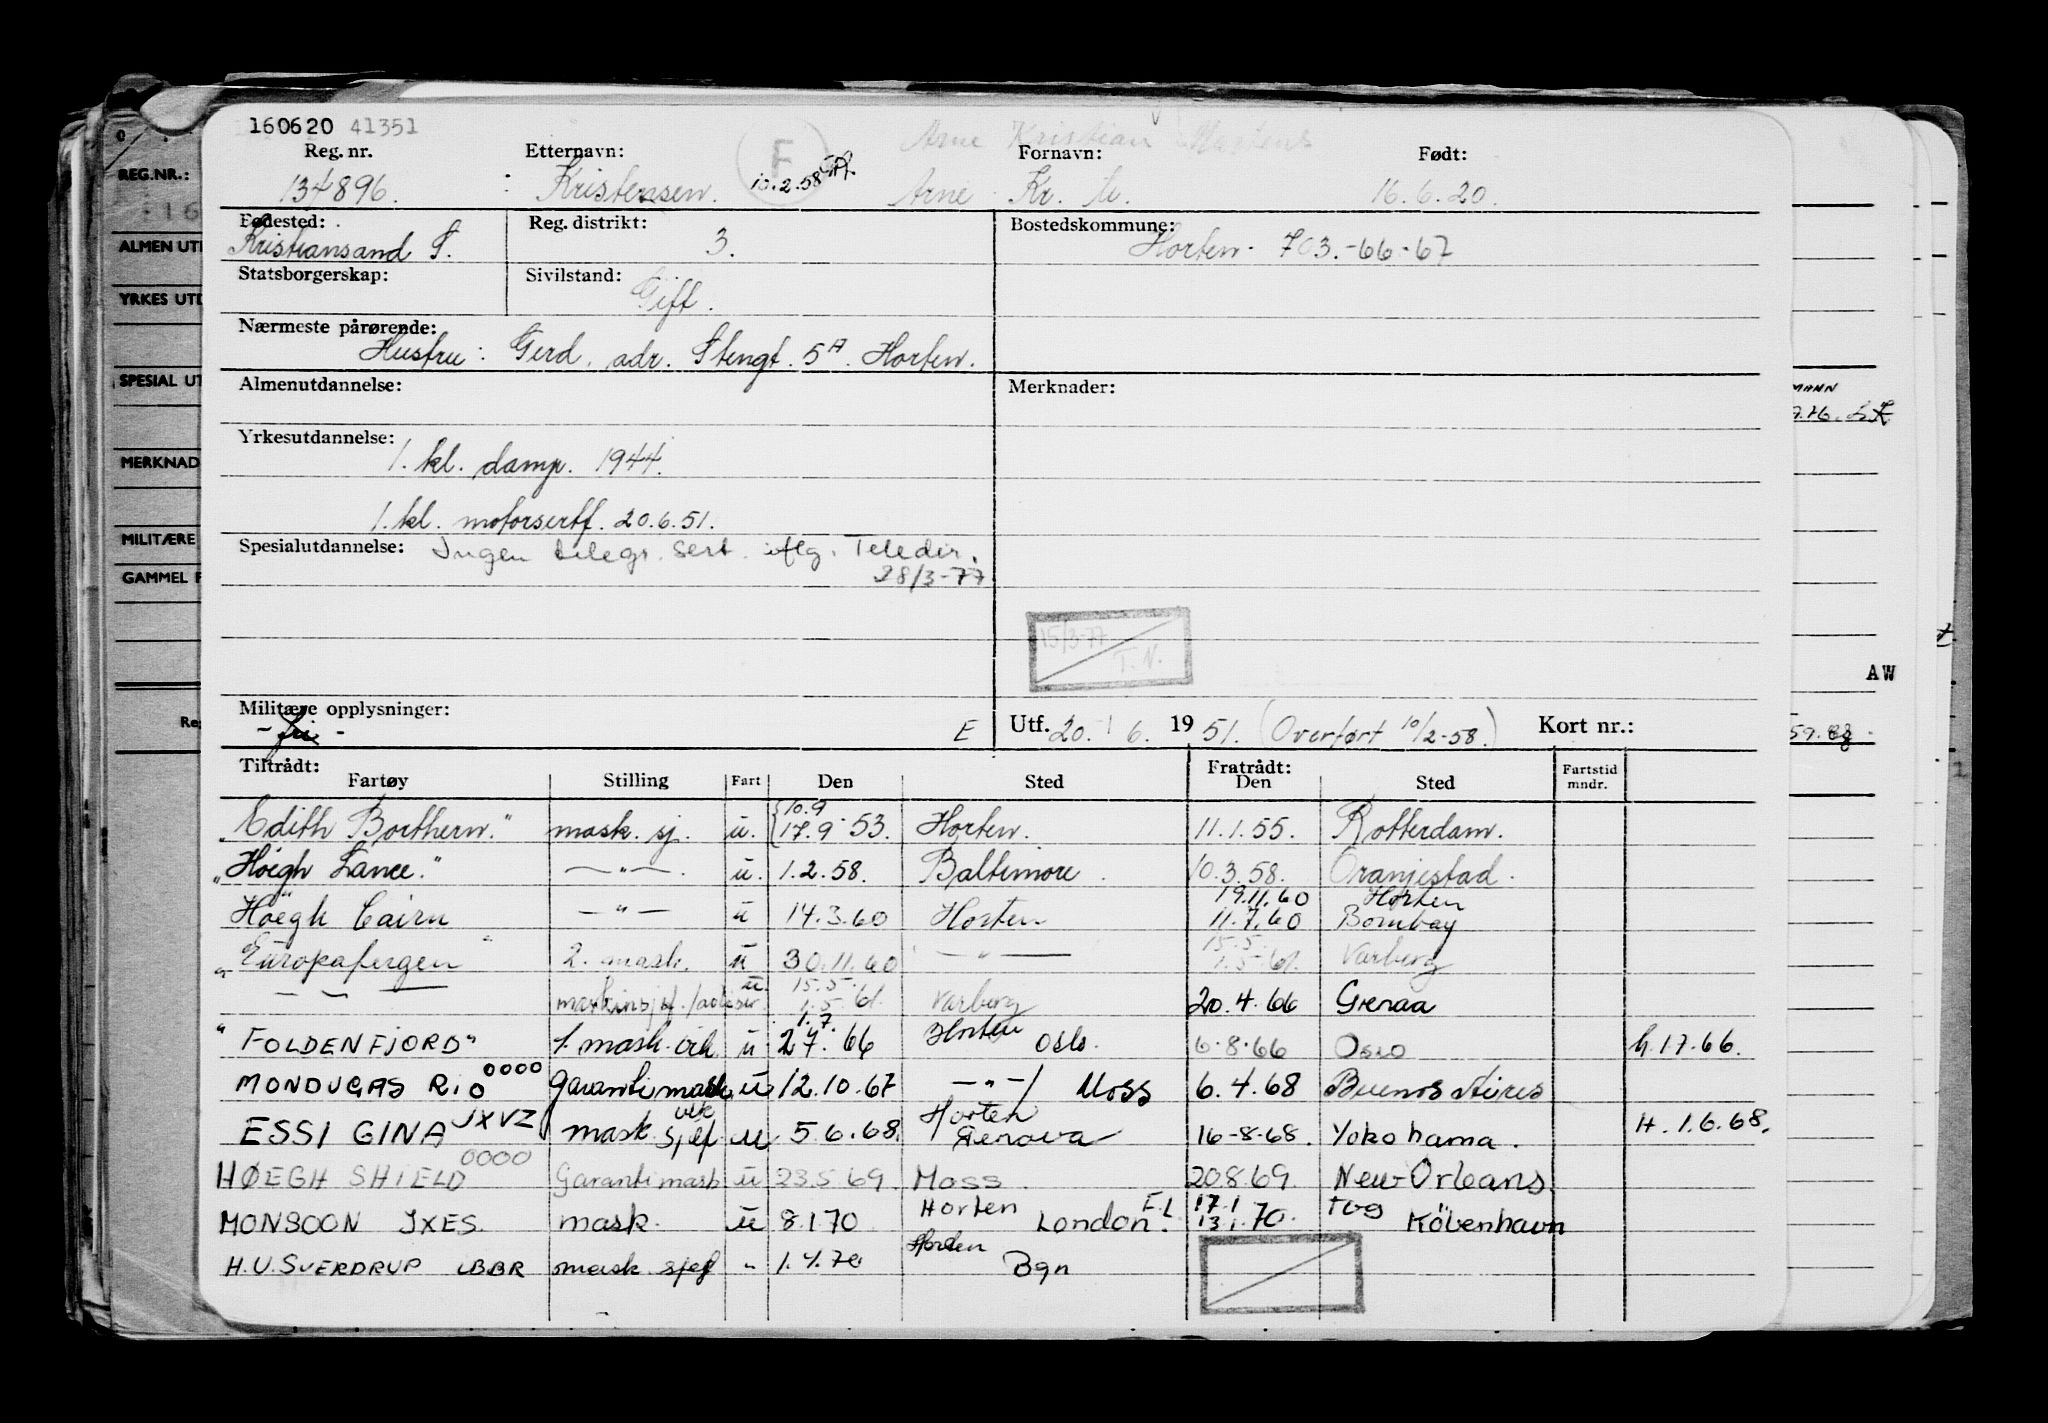 160620 41351
Arne Kristian Martens
Reg. nr. Etternavn: F Fornavn: Født:
134896. Kristensen. 10.2.58 Arne Kr. M. 16.6.20.
Fødested: Reg. distrikt: Bostedskommune:
Kristiansand S. 3. Horten - 703.-66-67
Statsborgerskap: Sivilstand:
Gift.
Nærmeste pårørende:
Hustru: Gerd. adr. Stengt. 5A. Horten.
Almenutdannelse: Merknader:
Yrkesutdannelse:
1. kl. damp. 1944.
1. kl. motorsertf. 20.6.51.
Spesialutdannelse: Ingen telegr. sert. iflg. Teledir.
28/3-77
15/3-77
T.N.
Militære opplysninger: E Utf. 20. 6. 1951. (Overført 10/2-58.) Kort nr.:
- fri -
Tiltrådt: Fratrådt:
Fartøy Stilling Fart Den Sted Den Sted Fartstid mndr.
10.9
"Edith Borthern." mask. sj. u. 17.9.53. Horten. 11.1.55. Rotterdam.
"Höegh Lance." — " — u. 1.2.58. Baltimore. 10.3.58. Oranjestad.
19.11.60 Horten
Höegh Cairn — " — u 14.3.60 Horten 11.7.60 Bombay
15.5.
"Europafergen" 2. mask. u 30.11.60 — " — 1.5.61. Varberg
15.5.
— " — maskinsjef. u 1.5.61. Varberg 20.4.66 Grenaa
1.7. Horten
"FOLDENFJORD" 1. mask. u 2 7. 66 Oslo. 6.8.66 Oslo h. 1.7.66.
MONDUGAS RIO 0000 Garantimask. u 12.10.67 — " — / Moss 6.4.68 Buenos Aires
vik Horten
ESSI GINA JXVZ mask. sjef u 5.6.68. Genova 16-8-68. Yokohama. H. 1.6.68.
HØEGH SHIELD 0000 Garantimask u 23.5.69. Moss. 20.8.69. New-Orleans.
Horten E.L 17.1 Tbg
MONSOON JXES. mask. u 8.1.70 London. 13.1.70. Köbenhavn
Horten
H.U. SVERDRUP LBBR mask. sjef " 1.4.70 Bgn
REG.NR.:
16
ALMEN UT
YRKES UTD
SPESIAL UT
MERKNAD
MILITÆRE
GAMMEL F
Re
MANN
AW